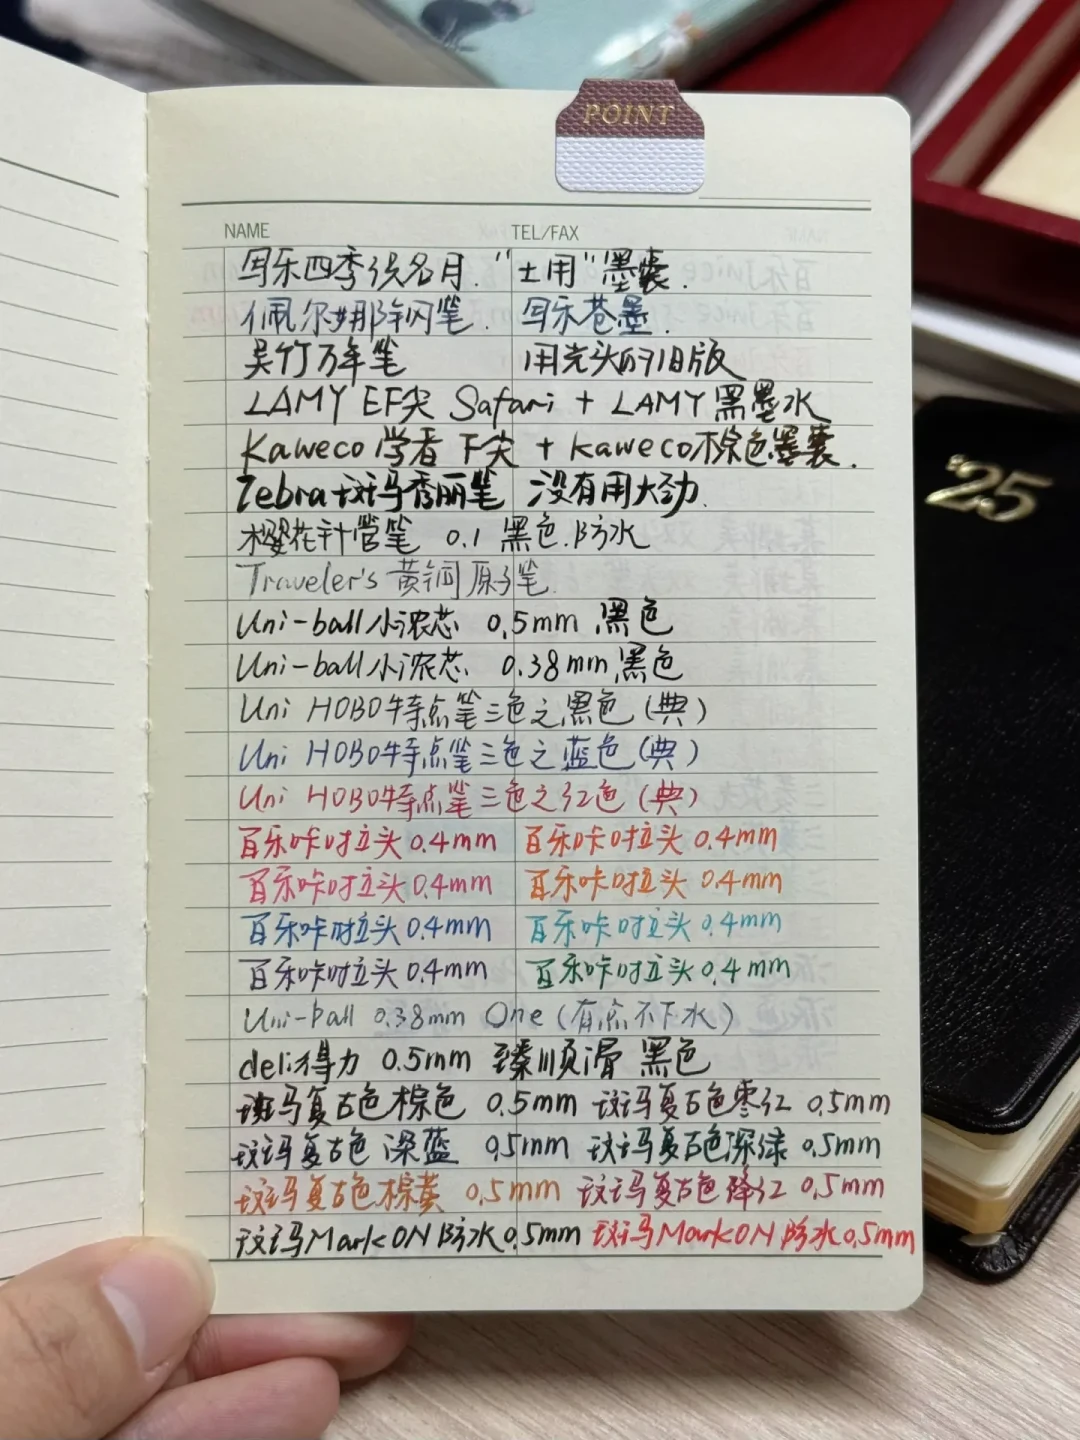 POINT
NAME TEL/FAX
写乐四季织名月. "土用"墨囊.
佩尔娜钢笔. 写乐苍墨.
吴竹万年笔 用光头的旧版
LAMY EF尖 Safari + LAMY黑墨水
Kaweco 学者 F尖 + kaweco棕色墨囊.
Zebra斑马秀丽笔 没有用大劲.
樱花针管笔 0.1 黑色.防水
Traveler's 黄铜原子笔.
Uni-ball小浓芯 0.5mm 黑色
Uni-ball小浓芯 0.38mm 黑色
Uni HOBO特点笔三色之黑色(典)
Uni HOBO特点笔三色之蓝色(典)
Uni HOBO特点笔三色之红色(典)
百乐咔吋拉头0.4mm 百乐咔吋拉头0.4mm
百乐咔吋拉头0.4mm 百乐咔吋拉头0.4mm
百乐咔吋拉头0.4mm 百乐咔吋拉头0.4mm
百乐咔吋拉头0.4mm 百乐咔吋拉头0.4mm
Uni-ball 0.38mm One (有点不下水)
deli得力 0.5mm 臻顺滑 黑色
斑马复古色棕色 0.5mm 斑马复古色枣红 0.5mm
斑马复古色 深蓝 0.5mm 斑马复古色深绿 0.5mm
斑马复古色棕黄 0.5mm 斑马复古色降红 0.5mm
斑马MarkON防水0.5mm 斑马MarkON防水0.5mm
'25